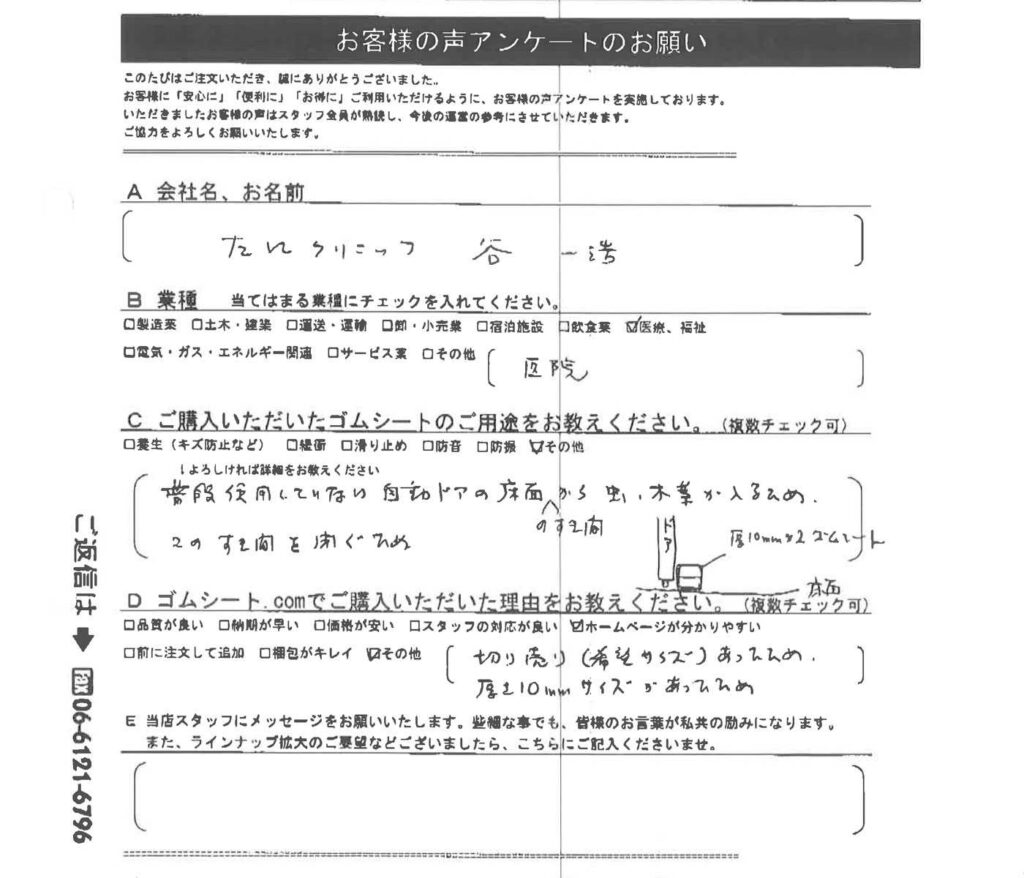 お客様の声アンケートのお願い
このたびはご注文いただき、誠にありがとうございました。
お客様に「安心に」「便利に」「お得に」ご利用いただけるように、お客様の声アンケートを実施しております。
いただきましたお客様の声はスタッフ全員が熟読し、今後の運営の参考にさせていただきます。
ご協力をよろしくお願いいたします。
A 会社名、お名前
たにクリニック 谷 一浩
B 業種 当てはまる業種にチェックを入れてください。
□製造業 □土木・建築 □運送・運輸 □卸・小売業 □宿泊施設 □飲食業 ☑医療、福祉
□電気・ガス・エネルギー関連 □サービス業 □その他
医院
C ご購入いただいたゴムシートのご用途をお教えください。(複数チェック可)
□養生(キズ防止など) □緩衝 □滑り止め □防音 □防振 ☑その他
↓よろしければ詳細をお教えください
普段使用していない自動ドアの床面から虫、木葉が入るため、
のすき間
このすき間を閉ぐため
ドア
厚10mm×2 ゴムシート
床面
D ゴムシート.comでご購入いただいた理由をお教えください。(複数チェック可)
□品質が良い □納期が早い □価格が安い □スタッフの対応が良い ☑ホームページが分かりやすい
□前に注文して追加 □梱包がキレイ ☑その他
切り売り(希望サイズ)あったため、
厚さ10mmサイズがあったため
E 当店スタッフにメッセージをお願いいたします。些細な事でも、皆様のお言葉が私共の励みになります。
また、ラインナップ拡大のご要望などございましたら、こちらにご記入くださいませ。
ご返信は➡FAX06-6121-6796